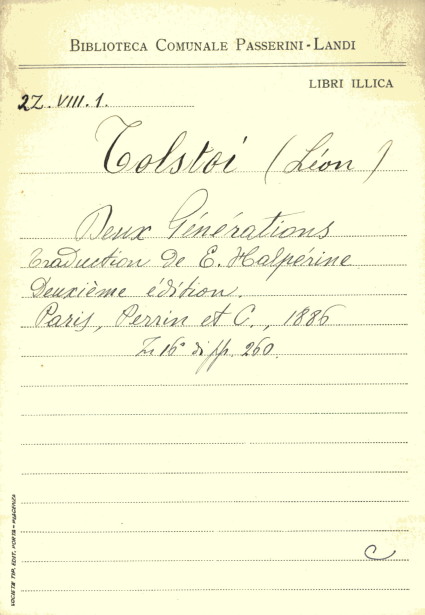 BIBLIOTECA COMUNALE PASSERINI-LANDI
LIBRI ILLICA
2Z.VIII.1.
Tolstoi (Léon)
Deux Générations
Traduction de E. Halpérine
Deuxième édition.
Paris, Perrin et C., 1886
In 16° di pp. 260.
C
SOCIETÀ TIP. EDIT. PORTA - PIACENZA